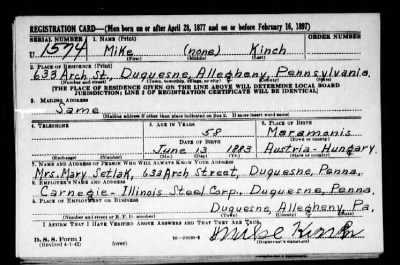 REGISTRATION CARD—(Men born on or after April 28, 1877 and on or before February 16, 1897)
SERIAL NUMBER 1. NAME (Print)
U 1574 Mike (none) Kinch
(First) (Middle) (Last)
2. PLACE OF RESIDENCE (Print)
633 Arch St., Duquesne, Allegheny, Pennsylvania
(Number and street) (Town, township, village, or city) (County) (State)
[THE PLACE OF RESIDENCE GIVEN ON THE LINE ABOVE WILL DETERMINE LOCAL BOARD
JURISDICTION; LINE 2 OF REGISTRATION CERTIFICATE WILL BE IDENTICAL]
3. MAILING ADDRESS
Same
[Mailing address if other than place indicated on line 2. If same insert word same]
4. TELEPHONE 5. AGE IN YEARS 6. PLACE OF BIRTH
58 Maramonis
DATE OF BIRTH (Town or county)
June 13 1883 Austria-Hungary
(Exchange) (Number) (Mo.) (Day) (Yr.) (State or country)
7. NAME AND ADDRESS OF PERSON WHO WILL ALWAYS KNOW YOUR ADDRESS
Mrs. Mary Setlak, 633 Arch Street, Duquesne, Penna.
8. EMPLOYER'S NAME AND ADDRESS
Carnegie-Illinois Steel Corp., Duquesne, Penna.
9. PLACE OF EMPLOYMENT OR BUSINESS
Duquesne, Allegheny, Pa.
(Number and street or R. F. D. number) (Town) (County) (State)
I AFFIRM THAT I HAVE VERIFIED ABOVE ANSWERS AND THAT THEY ARE TRUE.
D. S. S. Form 1
(Revised 4-1-42) (over) Mike
(Registrant's signature)